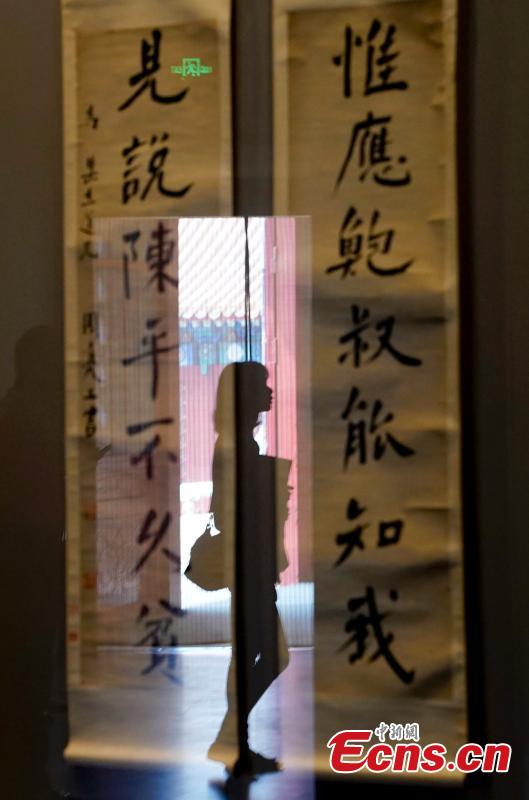 惟應鮑叔能知我
見說陳平不久貧
中新網
Ecns.cn